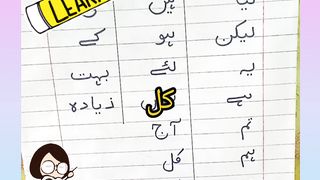 LEARN
لیکن ہو کے
یہ لئے بہت
ہے کل زیادہ
تم آج
ہم کل